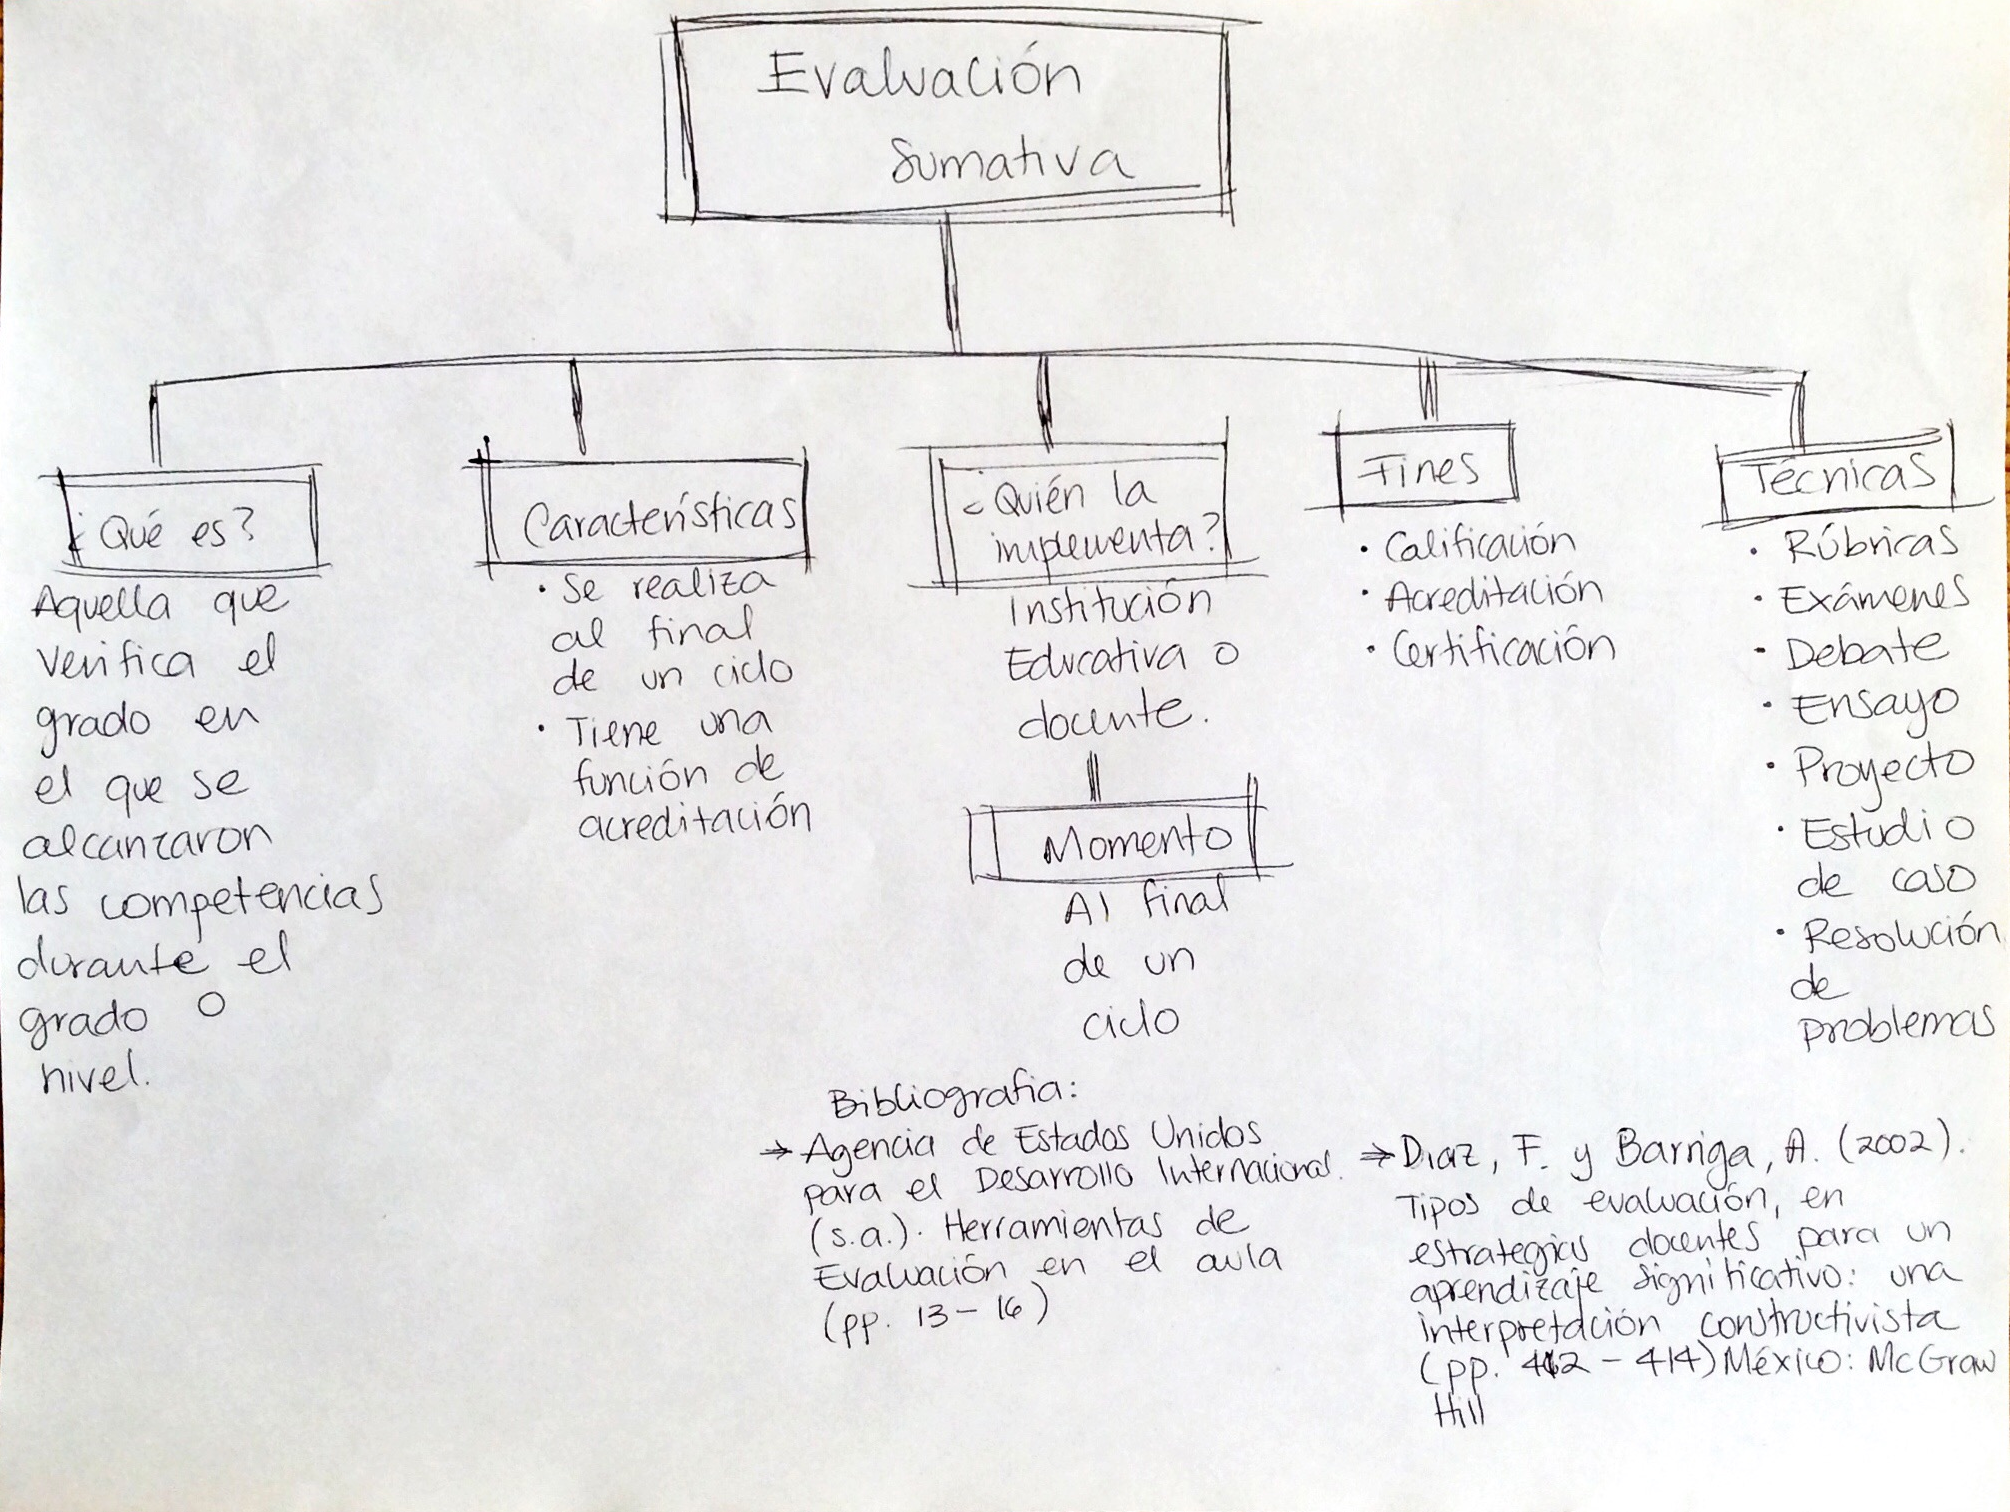 Evaluación
Sumativa
¿Qué es?
Aquella que
verifica el
grado en
el que se
alcanzaron
las competencias
durante el
grado o
nivel.
Características
· Se realiza
al final
de un ciclo
· Tiene una
función de
acreditación
¿Quién la
implementa?
Institución
Educativa o
docente.
Momento
Al final
de un
ciclo
Fines
· Calificación
· Acreditación
· Certificación
Técnicas
· Rúbricas
· Exámenes
· Debate
· Ensayo
· Proyecto
· Estudio
de caso
· Resolución
de
problemas
Bibliografia:
→ Agencia de Estados Unidos
para el Desarrollo Internacional.
(s.a.). Herramientas de
Evaluación en el aula
(pp. 13-16)
→ Diaz, F. y Barriga, A. (2002).
Tipos de evaluación, en
estrategias docentes para un
aprendizaje significativo: una
interpretación constructivista
(pp. 412 - 414) México: McGraw
Hill